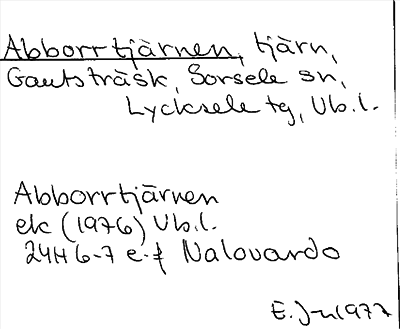 Abborrtjärnen, tjärn,
Gautsträsk, Sorsele sn,
Lycksele tg, Vb.l.
Abborrtjärnen
ek (1976) Vb.l.
24H 6-7 e-f Nalovardo
E. J-n 1977